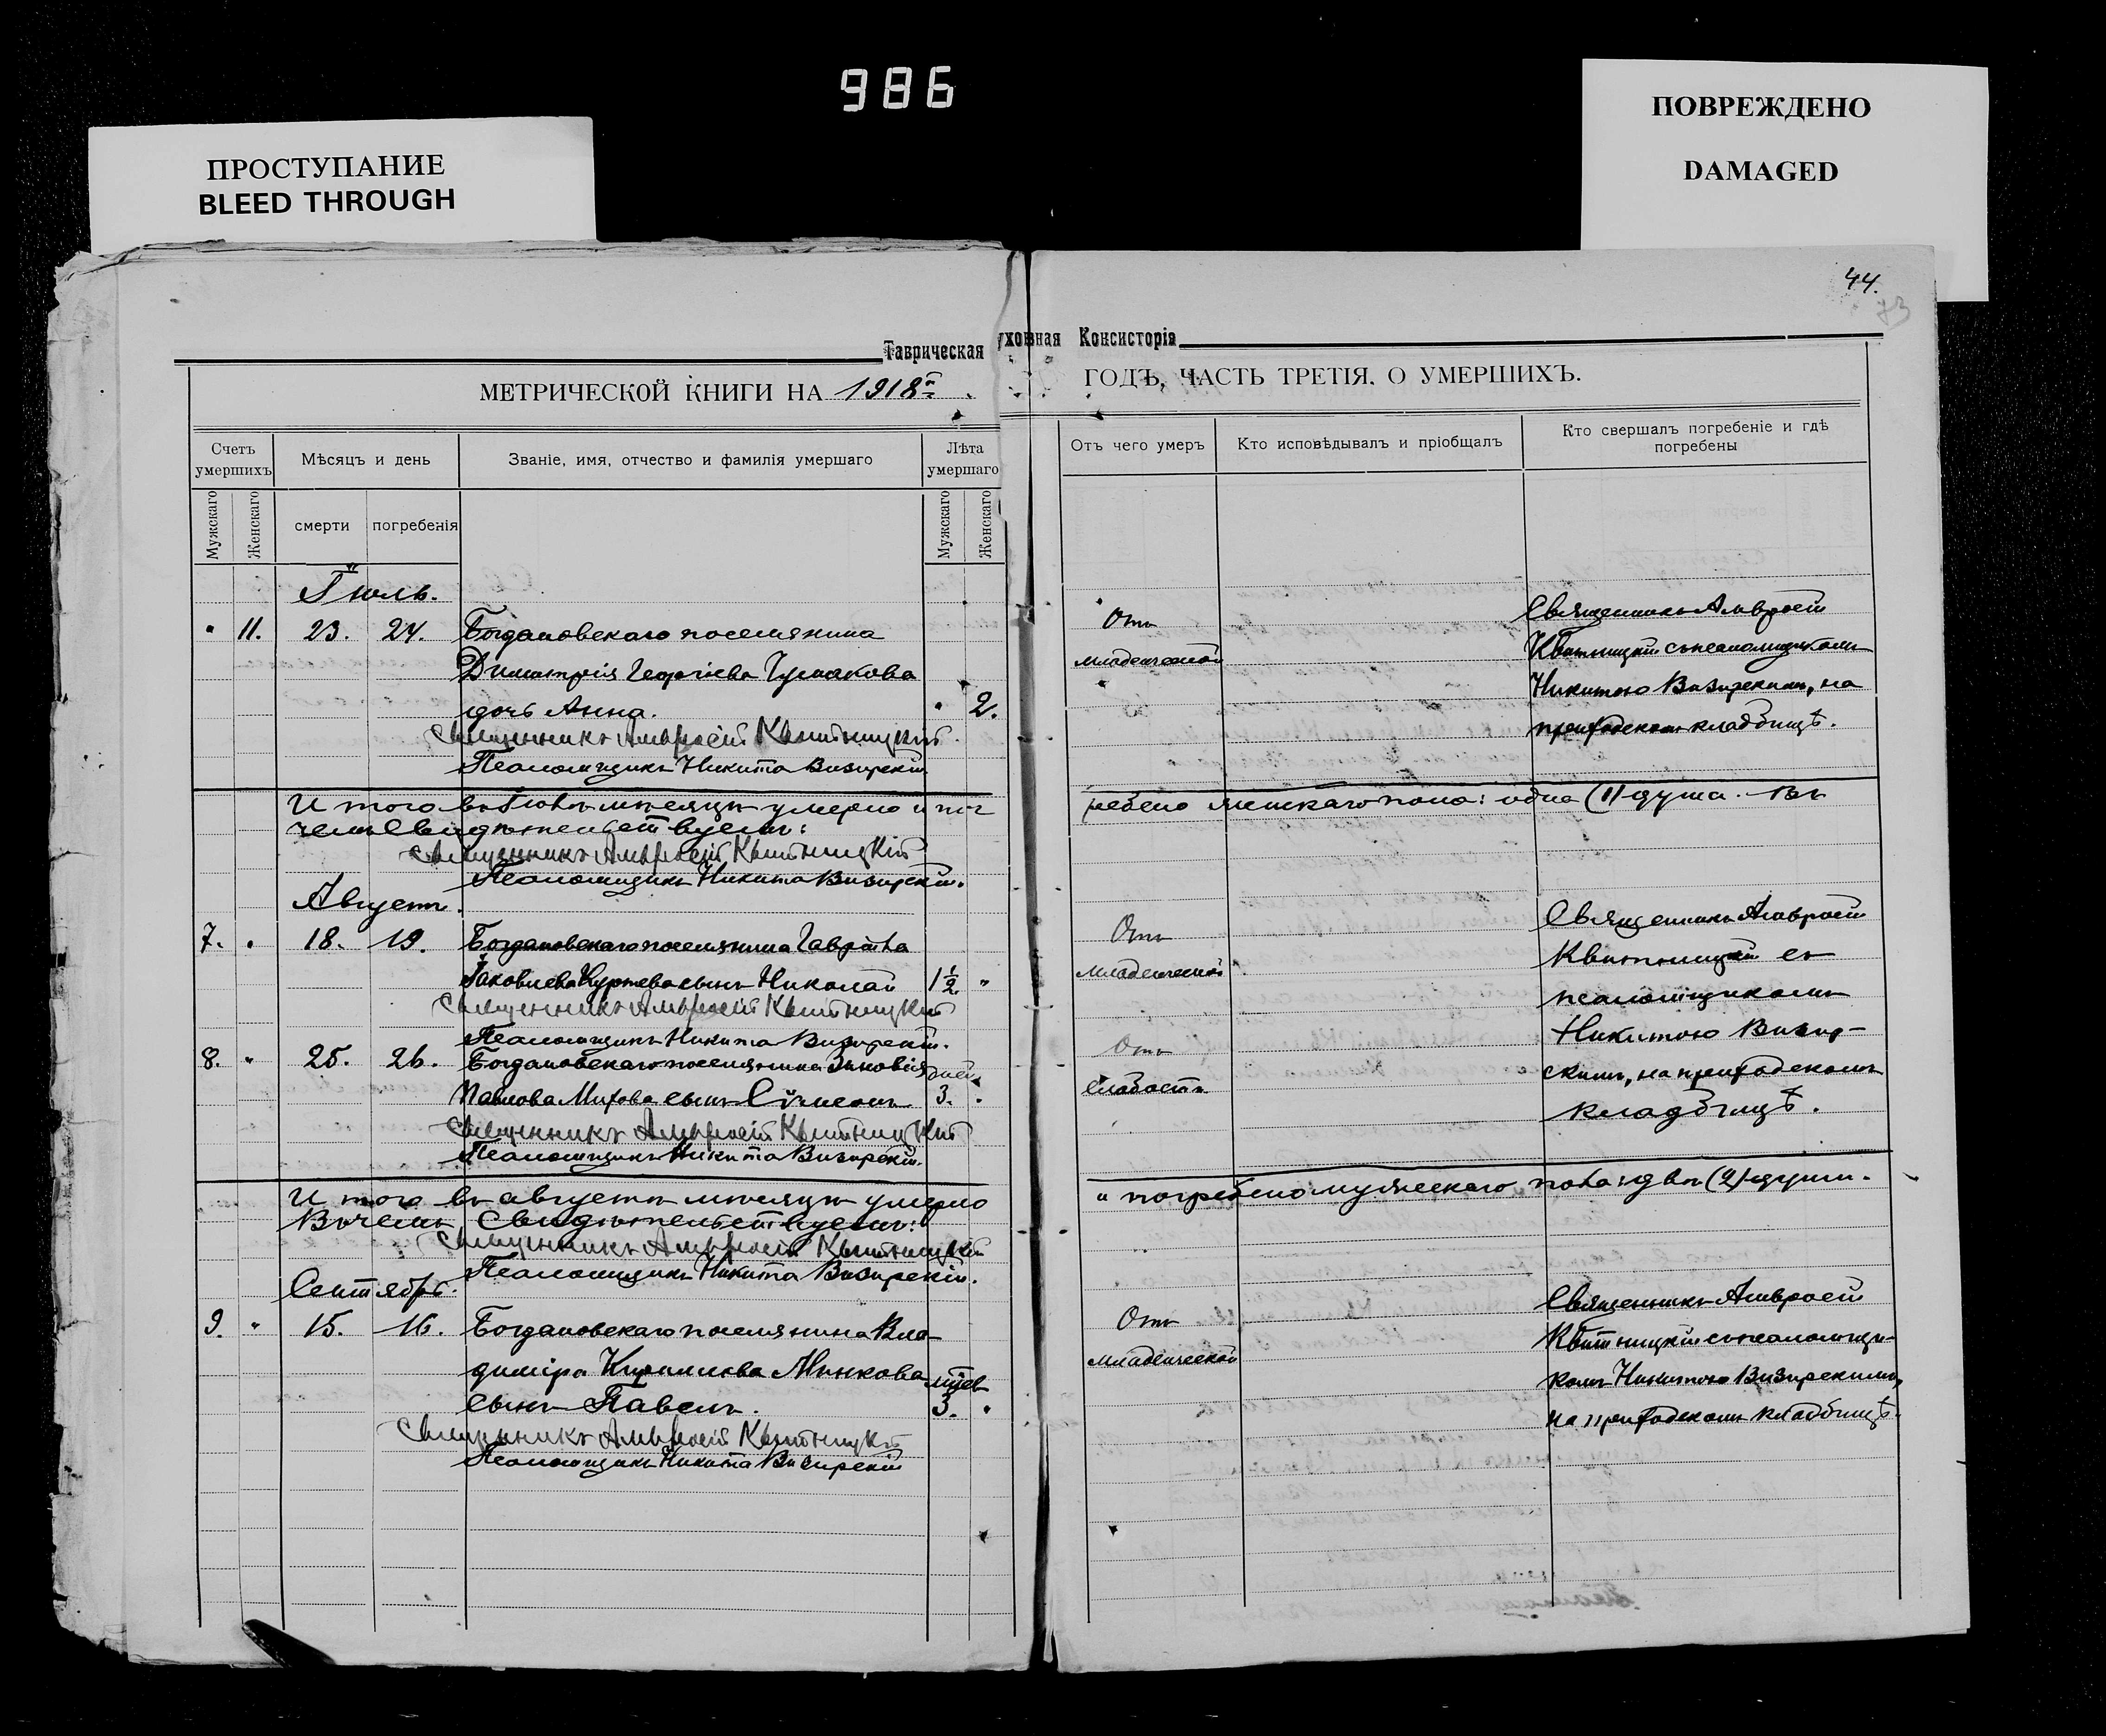 986
ПРОСТУПАНИЕ
BLEED THROUGH
ПОВРЕЖДЕНО
DAMAGED
44.
73
Таврическая
уховная Консисторія
МЕТРИЧЕСКОЙ КНИГИ НА 1918й
Счетъ умершихъ
Мѣсяцъ и день
Званіе, имя, отчество и фамилія умершаго
Лѣта умершаго
Мужскаго
Женскаго
смерти
погребенія
Мужскаго
Женскаго
Іюль.
" 11. 23. 24. Богдановскаго поселянина
Димитрія Георгіева Чумакова
дочь Анна. " 2.
Священникъ Амвросій Квитницкій
Псаломщикъ Никита Визирскій
Итого въ Іюлѣ мѣсяцѣ умерло и пог
чемъ свидѣтельствуемъ:
Священникъ Амвросій Квитницкій
Псаломщикъ Никита Визирскій.
Августъ.
7. " 18. 19. Богдановскаго поселянина Гавріила
Іаковлева Куртева сынъ Николай 1½ "
Священникъ Амвросій Квитницкій
Псаломщикъ Никита Визирскій.
8. " 25. 26. Богдановскаго поселянина Зиновія дней
Павлова Митова сынъ Сѵмеонъ 3. "
Священникъ Амвросій Квитницкій
Псаломщикъ Никита Визирскій.
Итого въ августѣ мѣсяцѣ умерло
Въ чемъ свидѣтельствуемъ:
Священникъ Амвросій Квитницкій
Псаломщикъ Никита Визирскій.
Сентябрь.
9. " 15. 16. Богдановскаго поселянина Вла-
диміра Кириллова Минкова
сынъ Павелъ. 3. "
Священникъ Амвросій Квитницкій
Псаломщикъ Никита Визирскій
ГОДЪ, ЧАСТЬ ТРЕТІЯ, О УМЕРШИХЪ.
Отъ чего умеръ
Кто исповѣдывалъ и пріобщалъ
Кто свершалъ погребеніе и гдѣ
погребены
Отъ
младенческой
Священникъ Амвросій
Квитницкій съ псаломщикомъ
Никитою Визирскимъ, на
приходскомъ кладбищѣ.
ребено женскаго пола: одна (1) душа. Въ
Отъ
младенческой
Отъ
слабости
Священникъ Амвросій
Квитницкій съ
псаломщикомъ
Никитою Визир-
скимъ, на приходскомъ
кладбищѣ.
и погребено мужескаго пола: двѣ (2) души.
Отъ
младенческой
Священникъ Амвросій
Квитницкій съ псаломщи-
комъ Никитою Визирскимъ,
на приходскомъ кладбищѣ.